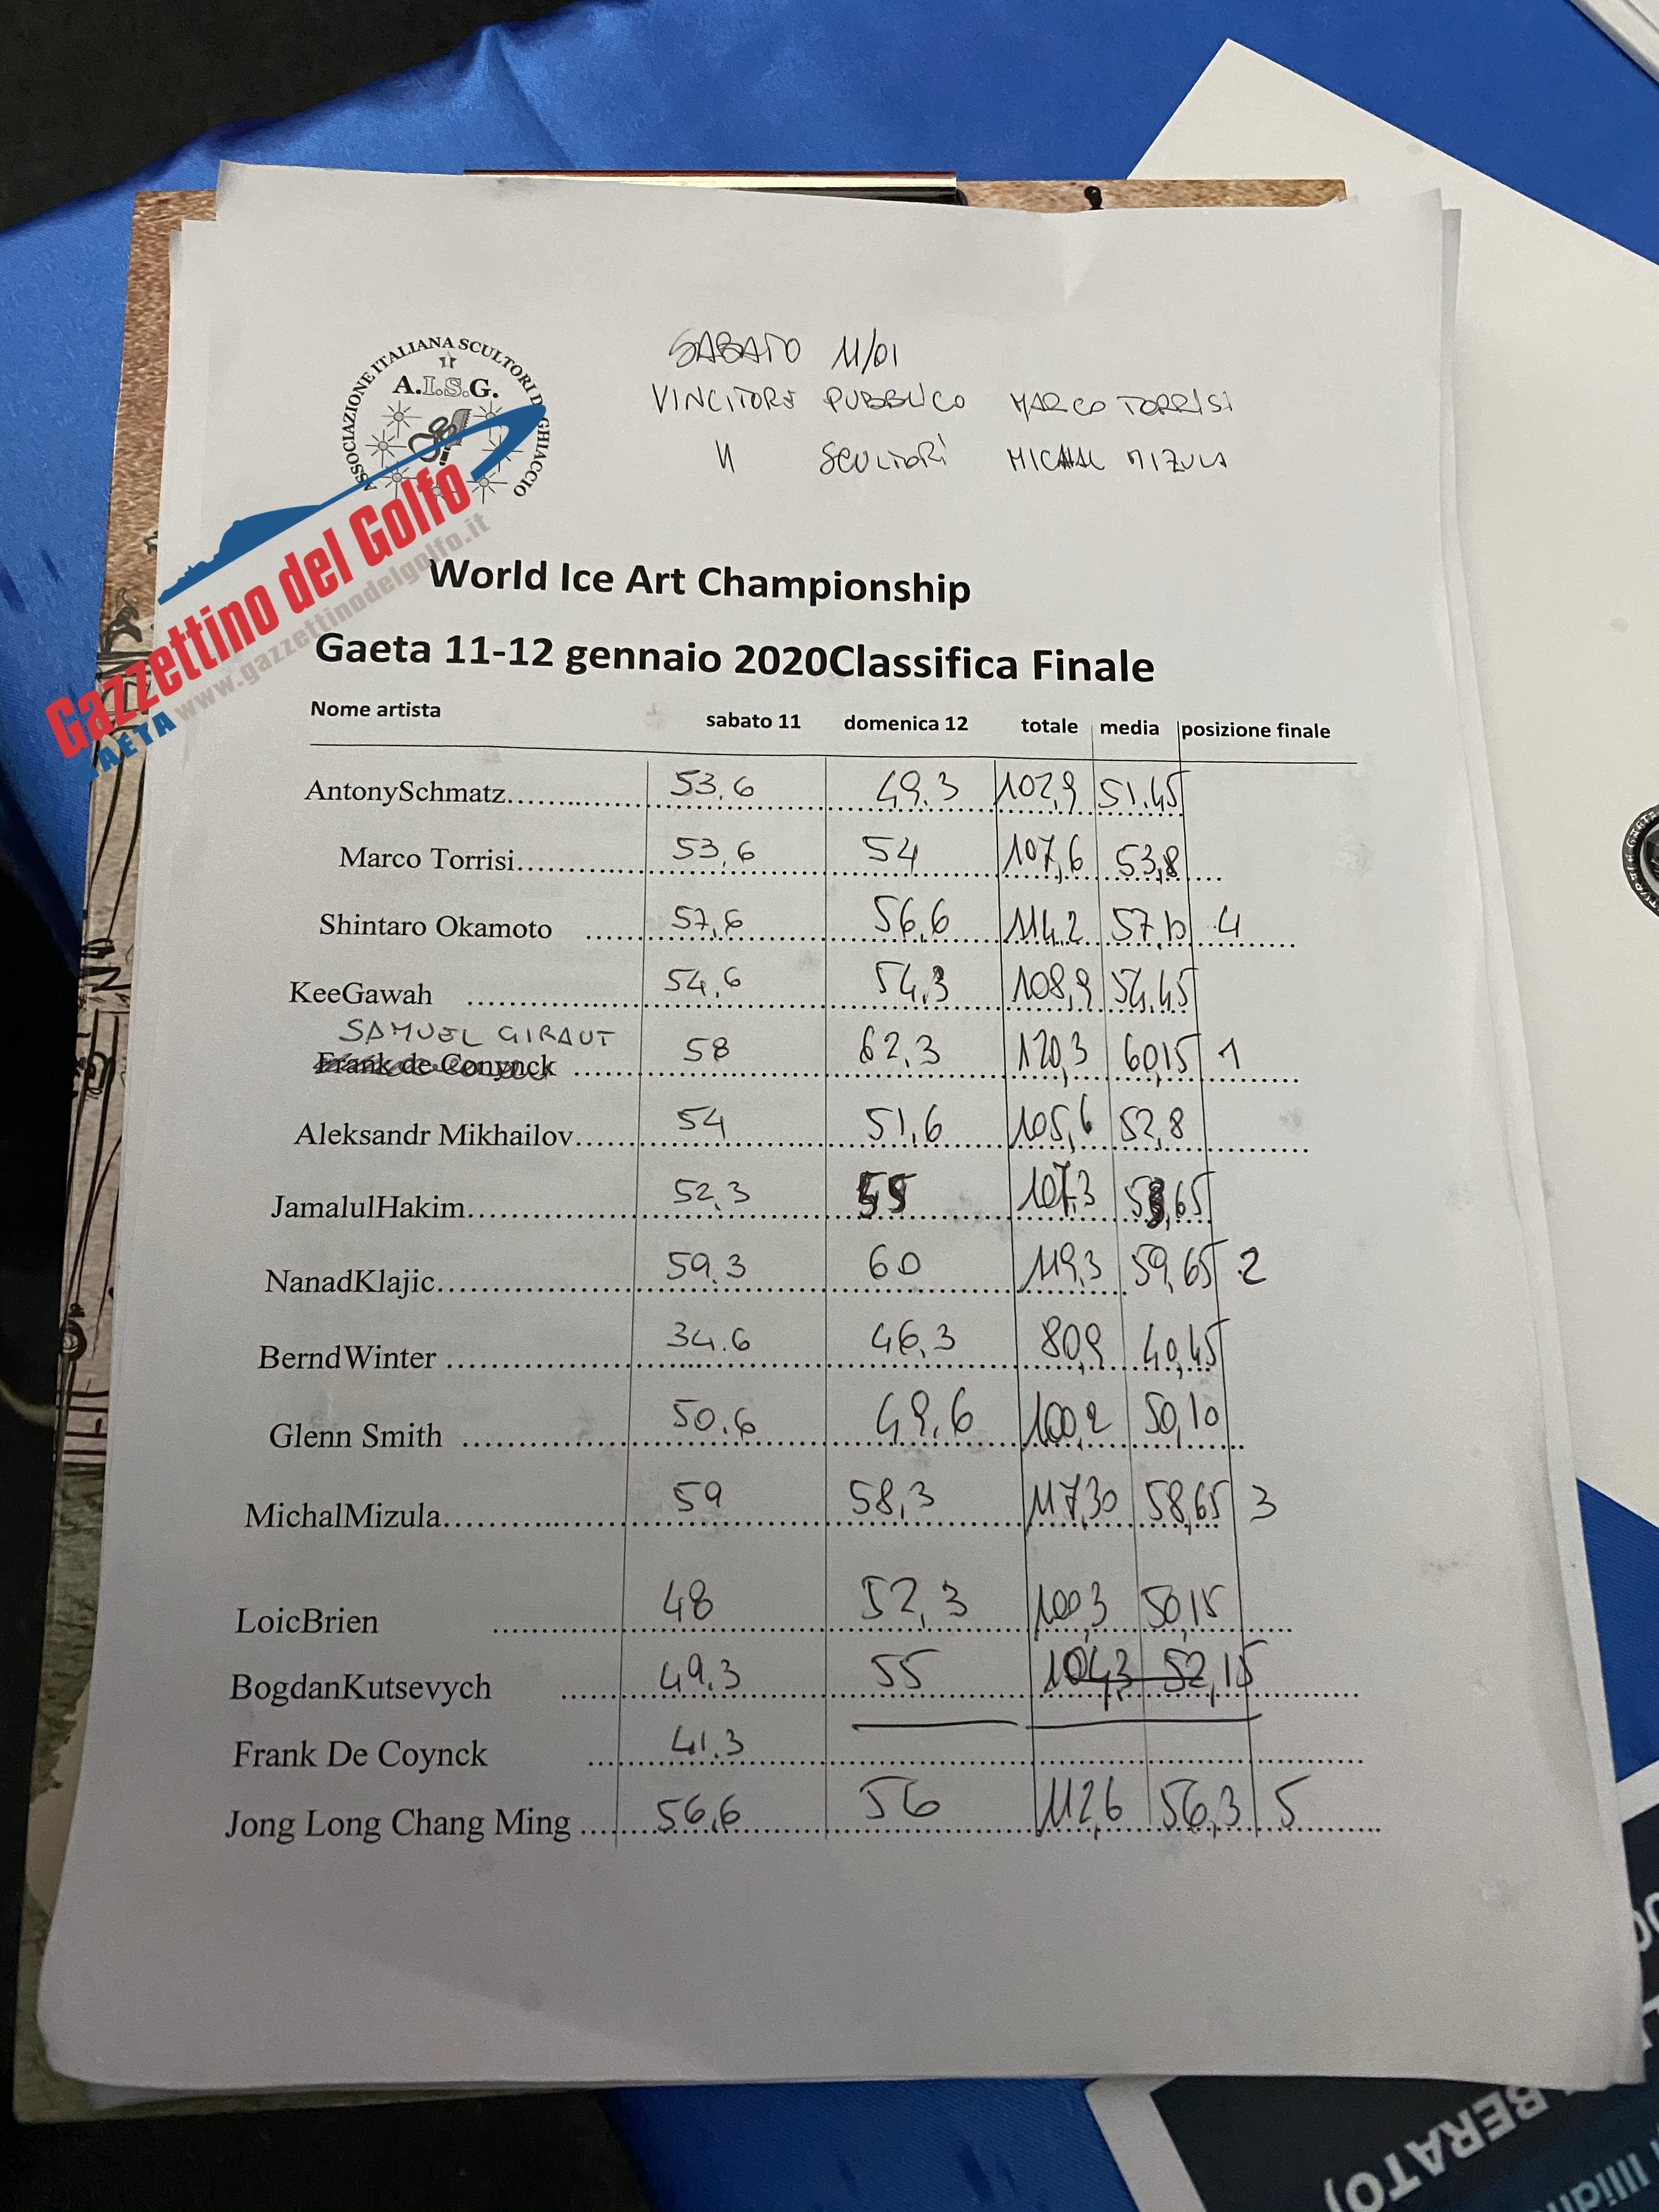 SABATO 11/01
VINCITORE PUBBLICO MARCO TORRISI
" SCULTORI MICHAL MIZULA
ASSOCIAZIONE ITALIANA SCULTORI DI GHIACCIO
A.I.S.G.
Gazzettino del Golfo
www.gazzettinodelgolfo.it
GAETA
World Ice Art Championship
Gaeta 11-12 gennaio 2020Classifica Finale
Nome artista sabato 11 domenica 12 totale media posizione finale
AntonySchmatz 53.6 49.3 102,9 51.45
Marco Torrisi 53,6 54 107,6 53,8
Shintaro Okamoto 57,6 56,6 114.2 57,10 4
KeeGawah 54,6 54,3 108,9 54,45
SAMUEL GIRAUT
Frank de Conynck 58 62,3 120,3 60,15 1
Aleksandr Mikhailov 54 51,6 105,6 52,8
JamalulHakim 52,3 55 107,3 53,65
NanadKlajic 59.3 60 119,3 59,65 2
BerndWinter 34.6 46,3 80,9 40,45
Glenn Smith 50.6 49,6 100,2 50,10
MichalMizula 59 58,3 117,30 58,65 3
LoicBrien 48 52,3 100,3 50,15
BogdanKutsevych 49.3 55 104,3 52,15
Frank De Coynck 41.3
Jong Long Chang Ming 56,6 56 112,6 56,3 5
BERATO)